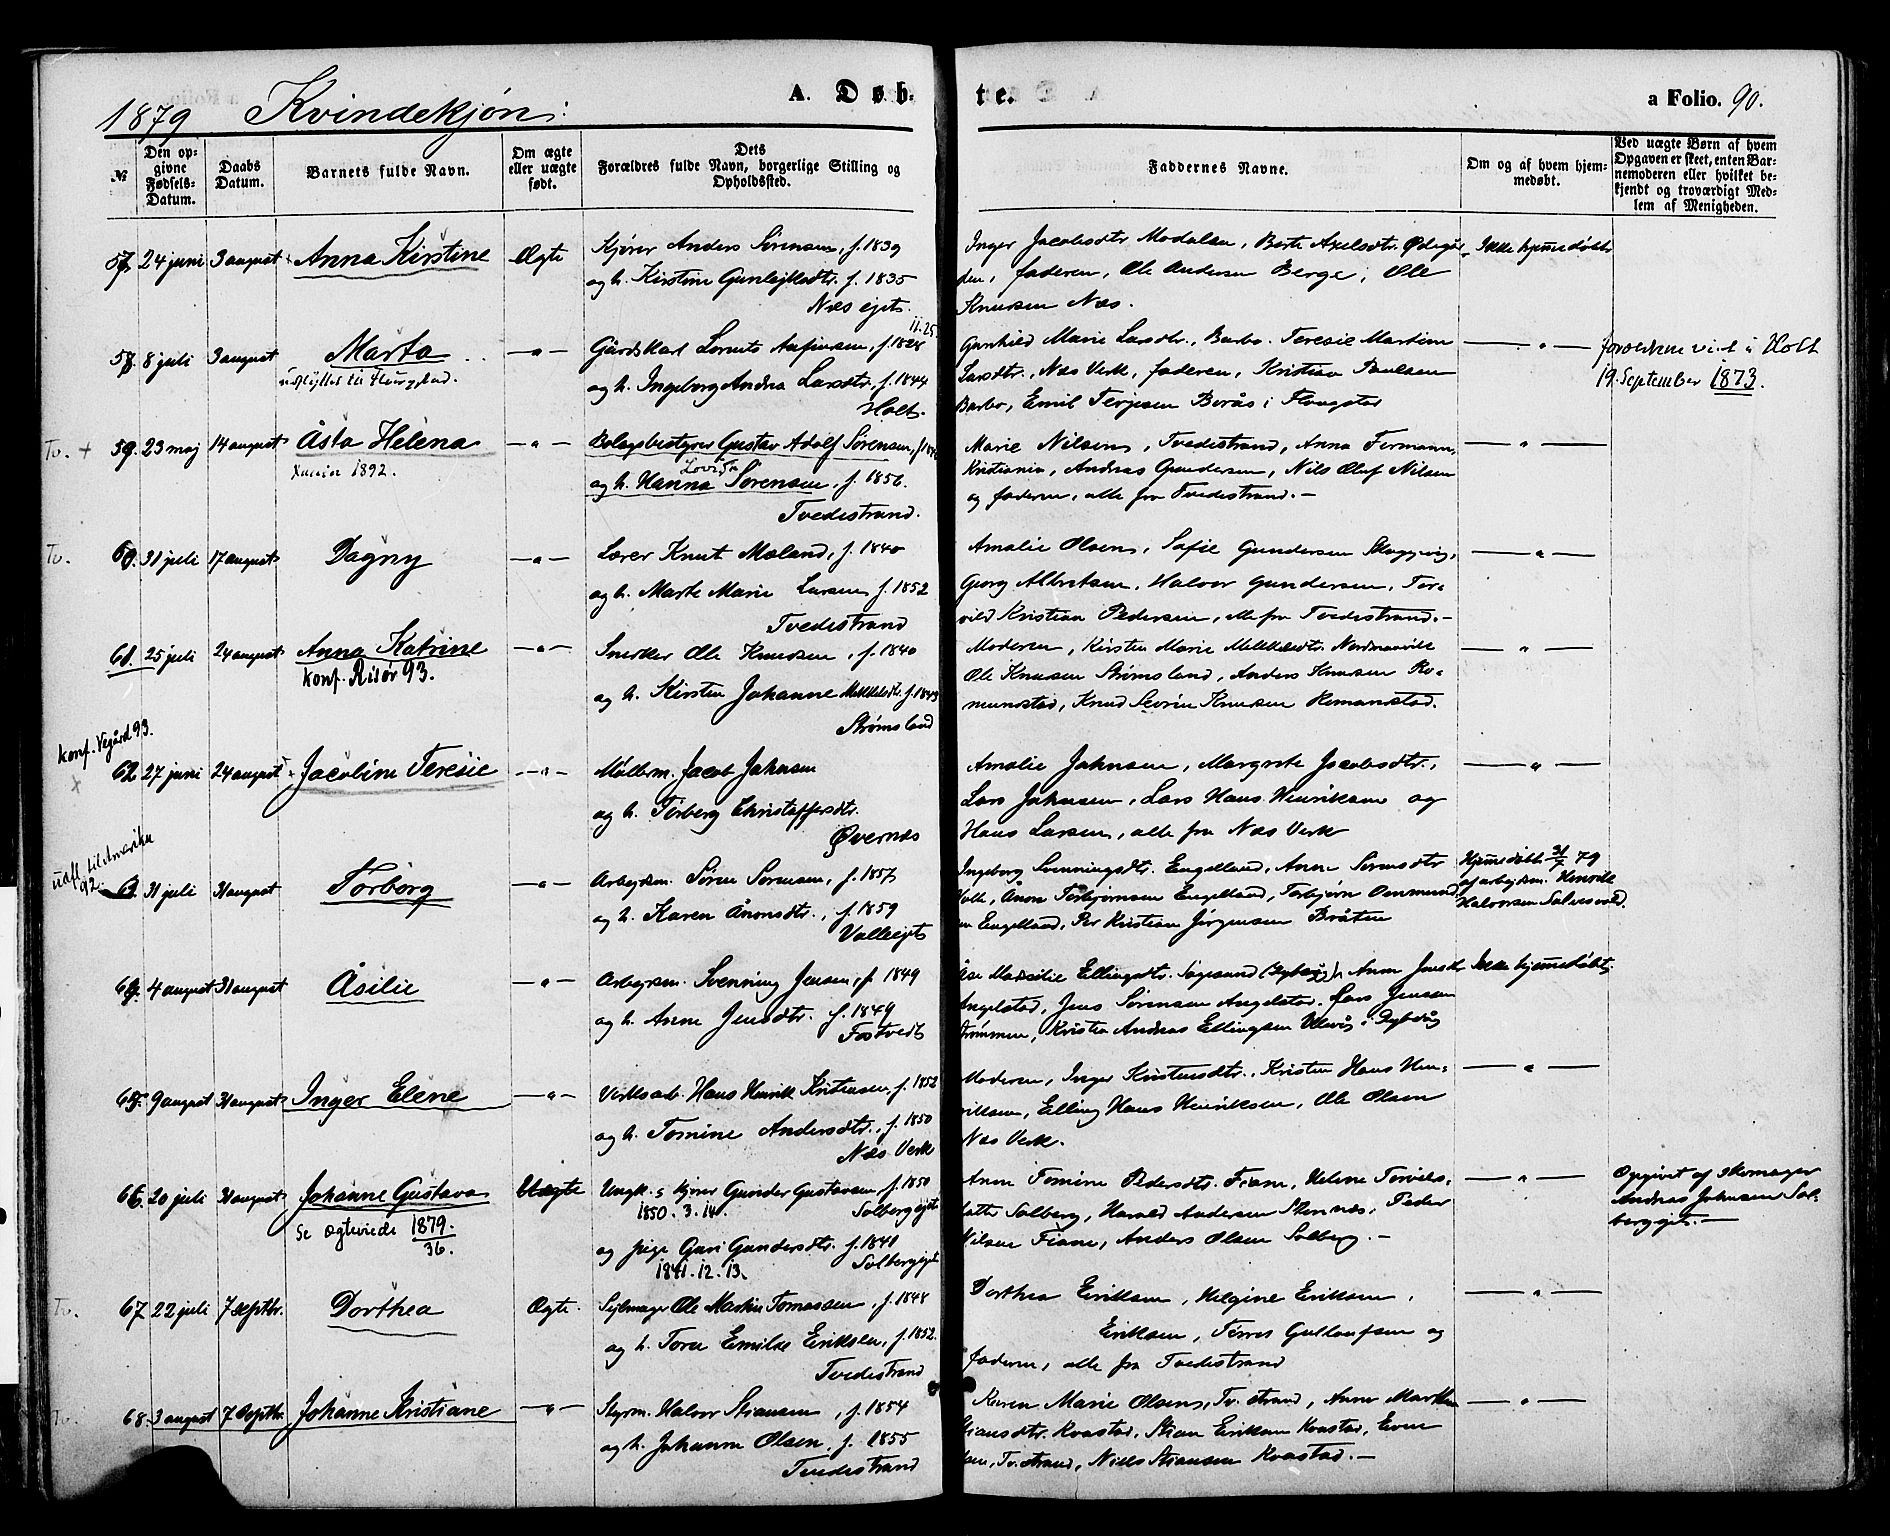 1879 Kvindekjøn:
A. Døb- te.
a Folio. 90.
№
Den opgivne Fødsels-Datum.
Daabs Datum.
Barnets fulde Navn.
Om ægte eller uægte født.
Dets Forældres fulde Navn, borgerlige Stilling og Opholdssted.
Faddernes Navne.
Om og af hvem hjemmedøbt.
Ved uægte Børn af hvem Opgaven er skeet, enten Barnemoderen eller hvilket bekjendt og troværdigt Medlem af Menigheden.
57. 24 juni 3 august Anna Kirstine Ægte Kjører Anders Sørensen, f. 1839
og h. Kirstine f. 1835
Næs ejet.
Inger Jacobsdtr. Modalen, Berte Axelsdtr. Ødegår-
den, faderen, Ole Andersen Berge, Ole
Knudsen Næs.
Ikke hjemmedøbt
58. 8 juli 3 august Marta — " — Gårdskarl f. 1828
11.25
og h. Ingeborg Andrea Larsdtr. f. 1844
Holt.
Gunhild Marie Larsdtr., Barbo, Teresie Martine
Larsdtr., Næs Verk, faderen, Kristian Paulsen
Barbo, Emil Terjesen Borås i Flougstad
— " —
forældrene viet i Holt
19. September 1873.
Tv. + 59. 23 maj 14 august Åsta Helena — " — Bolagsbestyrer Gustav Adolf Sørensen,
1892.
Lovise
og h. Hanna Sørensen, f. 1856.
Tvedestrand.
Marie Nilsen, Tvedestrand, Anna Fermann,
Kristiania, Andreas Gundersen, Nils Oluf Nilsen
og faderen, alle fra Tvedestrand. —
— " —
Tv. 60. 31 juli 17 august Dagny — " — Lærer Knut Mæland, f. 1840
og h. Marte Marie Larsen f. 1852
Tvedestrand
Amalie Olsen, Sofie Gundersen
Georg Albretsen, Halvor Gundersen, Tor-
vild Kristian Pedersen, alle fra Tvedestrand. —
— " —
61. 25 juli 24 august Anna Katrine — " — Snedker Ole Knudsen, f. 1840
konf. Risør 93.
og h. Kirsten Johanne Mikkelsdtr. f. 1843
Strømsland
Moderen, Kirsten Marie Mikkelsdtr.
Ole Knudsen Strømsland, Anders Knudsen Ro-
mundstad, Knud Severin Knudsen Romundstad.
— " —
konf. Vegård 93.
62. 27 juni 24 august Jacobine Teresie — " — Møllerm. Jacob Johnsen
og h. Torberg Christoffersdtr.
Øvernæs
Amalie Johnsen, Margrete Jacobsdtr.,
Lars Johnsen, Lars Hans Henriksen og
Hans Larsen, alle fra Næs Verk
— " —
udfl. til Amerika
92.
63. 31 juli 31 august Torborg — " — Arbejdsm. Søren Sørensen, f. 1857
og h. Karen Ånonsdtr., f. 1859
Valleejet
Ingeborg Svenningsdtr. Engelland, Anne Sørensdtr
Valle, Ånon Torbjørnsen Engelland, Torbjørn Ommund-
sen Engelland, Per Kristian Jørgensen Bråten
Hjemmedøbt 31/7 79
af arbejdsm. Henrik
Halvorsen Solersvold.
64. 4 august 31 august Åsilie — " — Arbejdsm. Svenning Jensen, f. 1849
og h. Anne Jensdtr. f. 1849
Fostvedt
Åse Marsilie Ellingsdtr. Sagesund (Dybvåg), Anne Jensdtr
Angelstad, Jens Sørensen Angelstad, Lars Jensen
Strømmen, Kristen Andreas Ellingsen Ulevåg i Dybvåg
Ikke hjemmedøbt
65. 9 august 31 august Inger Elene — " — Verksarb. Hans Henrik Kristensen, f. 1852
og h. Tomine Andersdtr., f. 1850
Næs Verk
Moderen, Inger Kristensdtr., Kristen Hans Hen-
riksen, Elling Hans Henriksen, Ole Olsen
Næs Verk.
— " —
66. 20 juli 31 august Johanne Gustava Uægte Ungk. & kjører Gunder Gustavsen, f. 1850
1850. 3. 14. Solbergejet
Se ægteviede 1879/36.
og pige Guri Gundersdtr. f. 1841
1841. 12. 13. Solbergejet
Anne Tomine Pedersdtr. Fiane, Helene Torvils-
datter Solberg, Harald Andersen Stennæs, Peder
Nilsen Fiane, Anders Olsen Solberg. —
— " —
Opgivet af skomager
Andreas Johnsen Sol-
bergejet. —
Tv. 67. 22 juli 7 septbr. Dorthea Ægte. Sejlmager Ole Martin Tomassen, f. 1848
og h. Tora Emilie Eriksen, f. 1852.
Tvedestrand
Dorthea Eriksen, Helgine Eriksen,
Eriksen, Terres Gulloufsen og
faderen, alle fra Tvedestrand
— " —
Tv. 68. 3 august 7 septbr. Johanne Kristiane — " — Styrm. Halvor Stiansen, f. 1854
og h. Johanne Olsen, f. 1855
Tvedestrand
Karen Marie Olsen, Tv.strand, Anne Marthe
Stiansdtr. Kvastad, Stian Eriksen Kvastad, Even
Olsen, Tv.strand, Niels Stiansen Kvastad. —
— " —